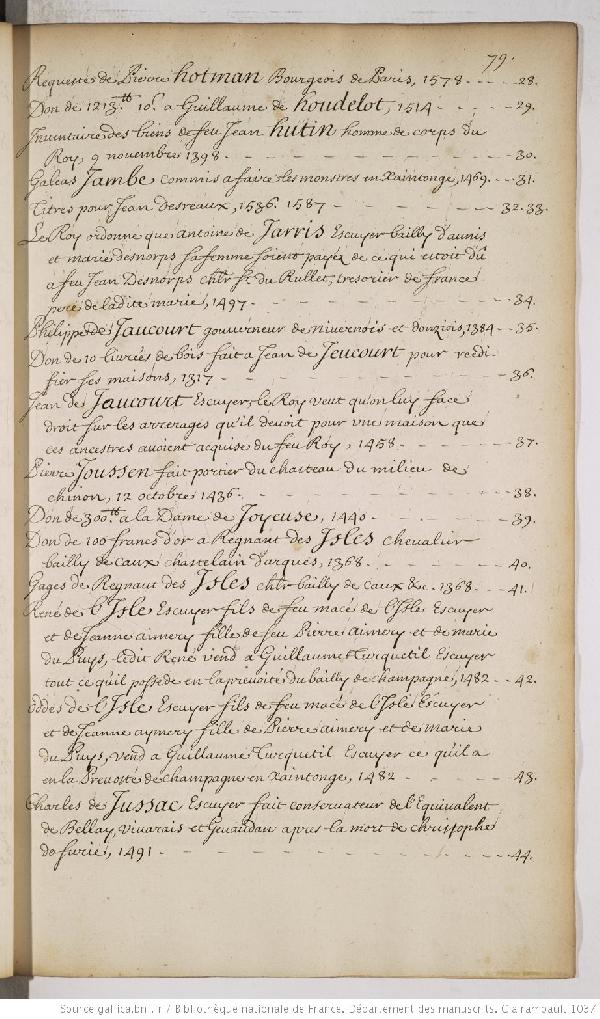 79.
Requestes de Pierre hotman Bourgeois de Paris, 1578 - - - - 28.
Don de 1213.tt 10s. a Guillaume de houdelot, 1514 - - - - - 29.
Inventaire des biens de feu Jean hutin homme de corps du
Roy, 9 novembre 1398 - - - - - - - - - - 30.
Galeas Jambe commis a faire les monstres en Xaintonge, 1469. - - 31.
Titres pour Jean desreaux, 1586. 1587 - - - - - - - 32. 33.
Le Roy ordonne que antoine de Jarris Escuyer bailly d'aunis
et marie desnorps sa femme soient payez de ce qui etoit dû
a feu Jean Desnorps chlr sr. du Rullet, tresorier de france
pere de ladite marie, 1497 - - - - - - - - - 34.
Philippe de Jaucourt gouverneur de nivernois et donziois, 1384 - - 35.
Don de 10 livrées de bois fait a Jean de Jeucourt pour reedi-
fier ses maisons, 1317 - - - - - - - - - - 36.
Jean de Jaucourt Escuyer, le Roy veut qu'on luy face
droit sur les arrerages qu'il devoit pour une maison que
ces ancestres avoient acquise du feu Roy, 1458 - - - - - 37.
Pierre Joussen fait portier du chasteau du milieu de
chinon, 12 octobre 1436 - - - - - - - - - - 38.
Don de 300.tt a la Dame de Joyeuse, 1440 - - - - - - 39.
Don de 100 francs d'or a Regnaut des Isles chevalier
bailly de caux chastelain d'arques, 1368 - - - - - - 40.
Gages de Regnaut des Isles chlr bailly de caux &c. 1368 - - 41.
René de l'Isle Escuyer fils de feu macé de l'Isle Escuyer
et de Jeanne aimery fille de feu Pierre aimery et de marie
du Puys, ledit René vend a Guillaume Turquetil Escuyer
tout ce qu'il possede en la prevoité du bailly de champagne, 1482 - - 42.
oddes de l'Isle Escuyer fils de feu macé de l'Isle Escuyer
et de Jeanne aymery fille de Pierre aimery et de marie
du Puys, vend a Guillaume Turquetil Escuyer ce qu'il a
en la Prevosté de champagne en Xaintonge, 1482 - - - - 43.
Charles de Jussac Escuyer fait conservateur de l'Equivalent
de Bellay, vivarais et Gevaudan apres la mort de christophe
de 1491 - - - - - - - - - - - - 44.
Source gallica.bnf.fr / Bibliothèque nationale de France. Département des manuscrits. Clairambault 1037